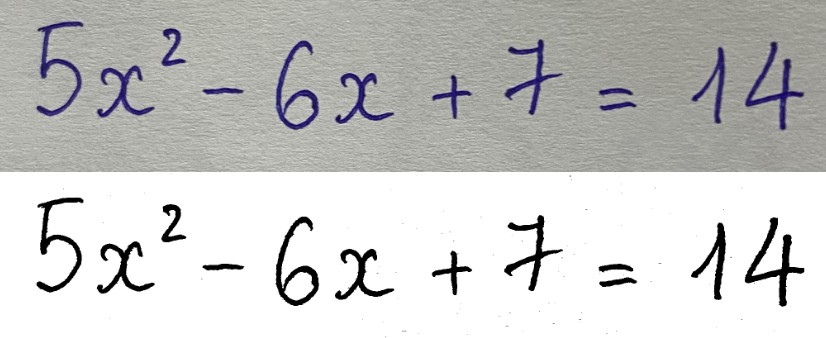 5x² - 6x + 7 = 14
5x² - 6x + 7 = 14